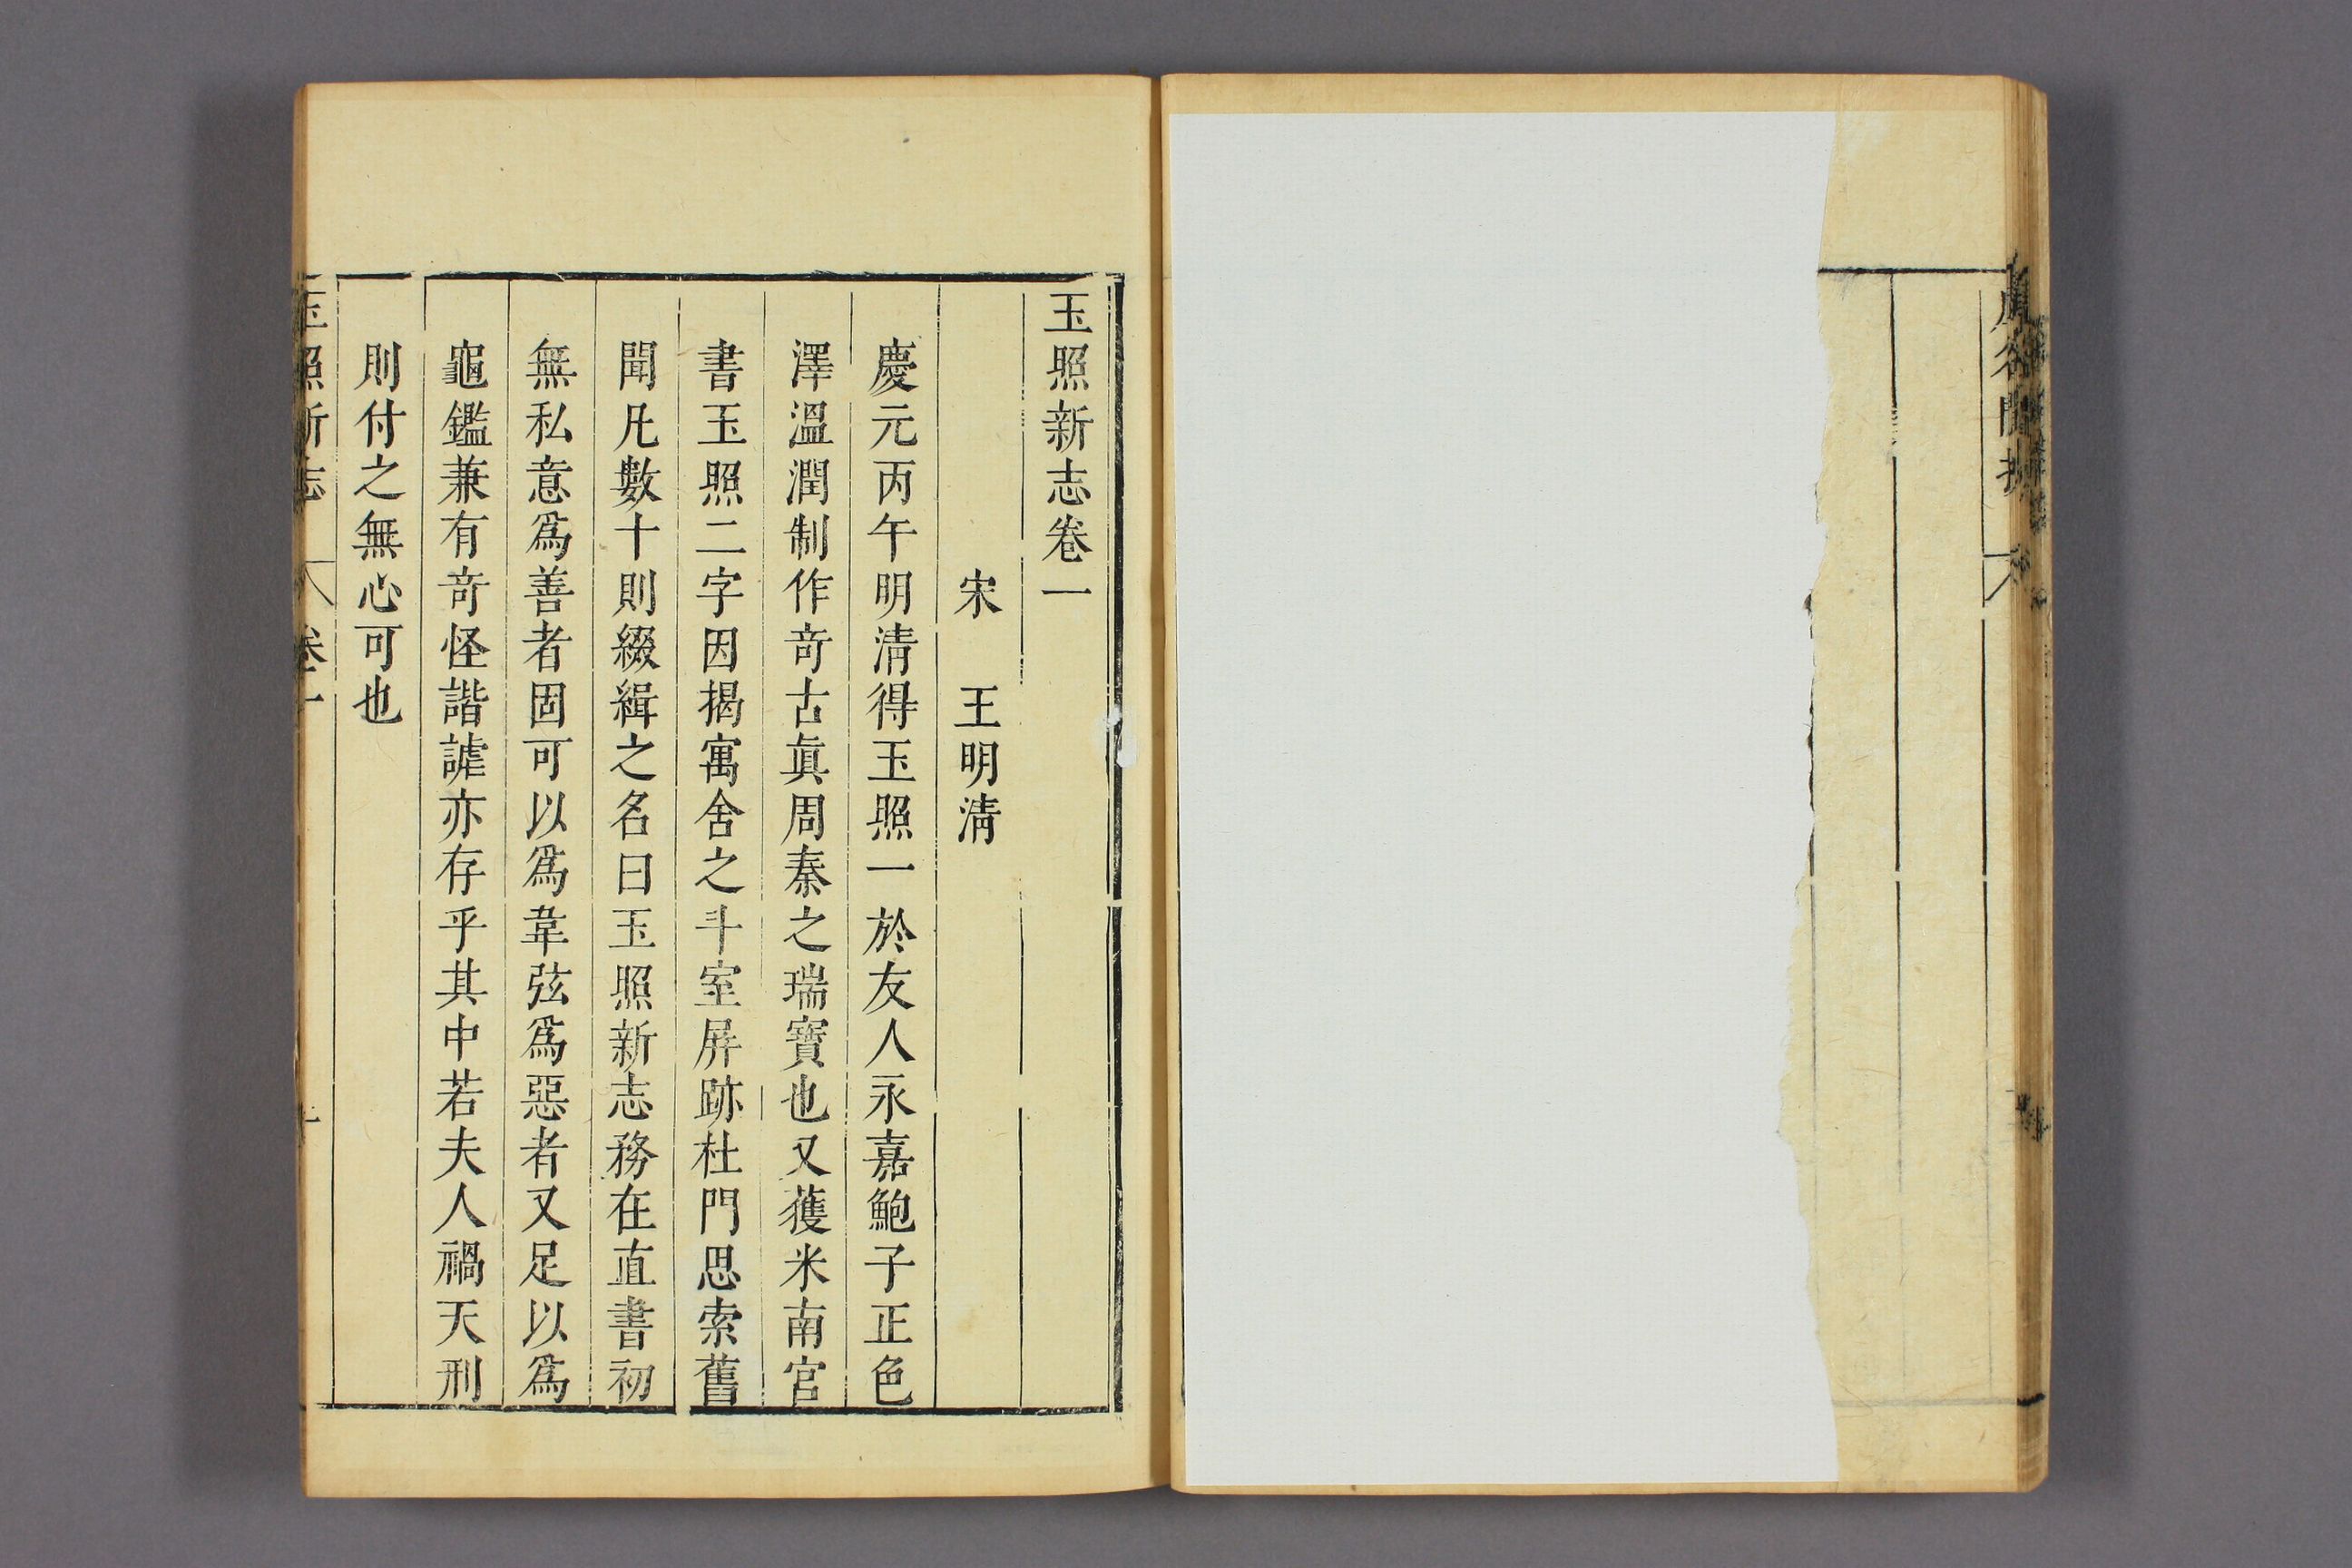 玉照新志卷一
宋 王明淸
慶元丙午明淸得玉照一於友人永嘉鮑子正色
澤溫潤制作奇古眞周秦之瑞寶也又獲米南宮
書玉照二字因揭寓舍之斗室屏跡杜門思索舊
聞凡數十則綴緝之名曰玉照新志務在直書初
無私意爲善者固可以爲韋弦爲惡者又足以爲
龜鑑兼有奇怪諧謔亦存乎其中若夫人禍天刑
則付之無心可也
玉照新志 卷一